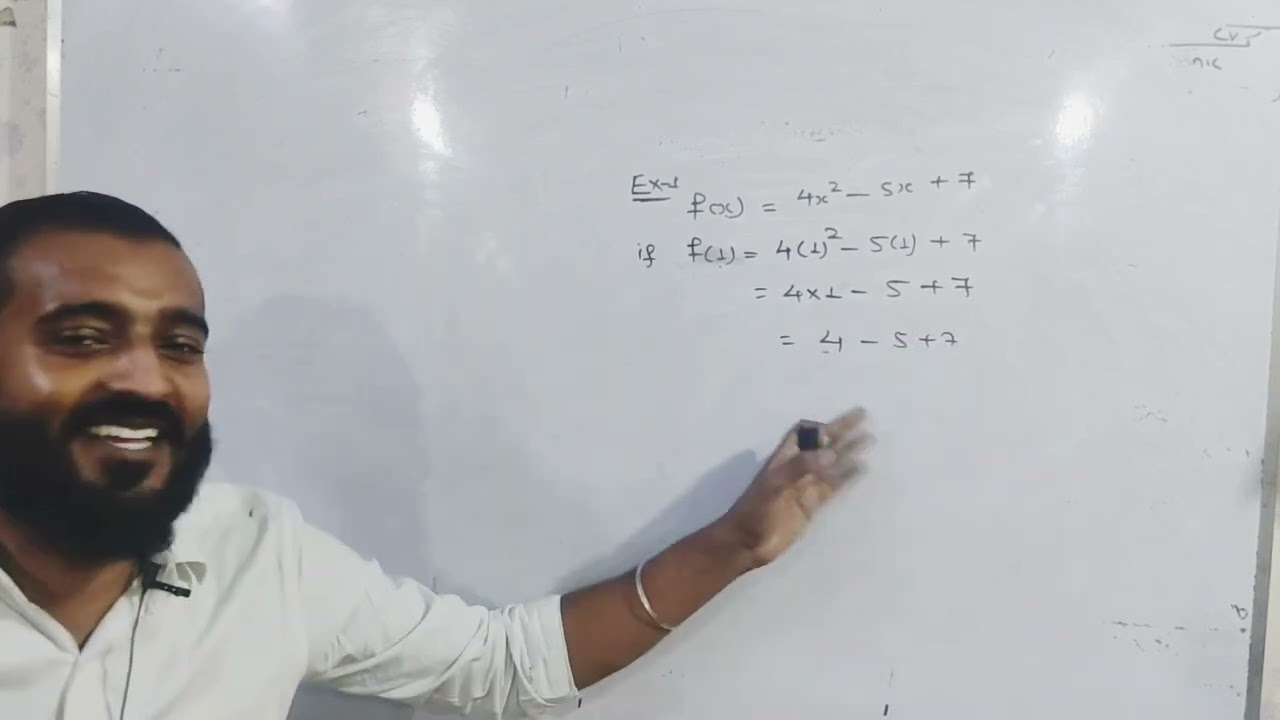 Ex-1 f(x) = 4x² - 5x + 7
if f(1) = 4(1)² - 5(1) + 7
= 4×1 - 5 + 7
= 4 - 5 + 7